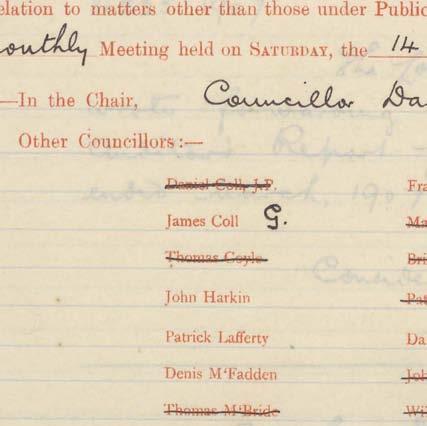 elation to matters other than those under Public
onthly Meeting held on SATURDAY, the 14
—In the Chair, Councillor Da
Other Councillors:—
Daniel Coll, J.P. Fra
James Coll G. Ma
Thomas Coyle Bri
John Harkin Pat
Patrick Lafferty Da
Denis M'Fadden Joh
Thomas M'Bride Wi